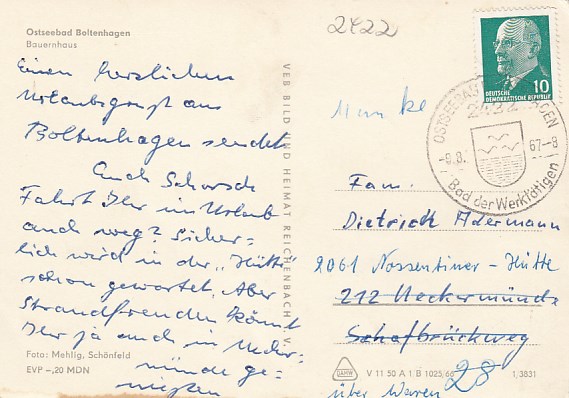 Ostseebad Boltenhagen
Bauernhaus
Einen herzlichen
Urlaubsgruß aus
Boltenhagen sendet
Euch Schorsch
Fahrt Ihr im Urlaub
auch weg? Sicher=
lich wird in der „Hütte"
schon gewartet. Aber
Strandfreuden könnt
Ihr ja auch in Uecker=
münde ge=
nießen
Foto: Mehlig, Schönfeld
EVP -,20 MDN
VEB BILD UND HEIMAT REICHENBACH I. V.
2422
DEUTSCHE
DEMOKRATISCHE REPUBLIK
10
OSTSEEBAD BOLTENHAGEN
2422
-9.8. 67-8
Bad der Werktätigen
Fam.
Dietrich Adermann
2061 Nossentiner-Hütte
212 Ueckermünde
Schafbrückweg
28
über Waren
V 11 50 A 1 B 1025/66 1,3831